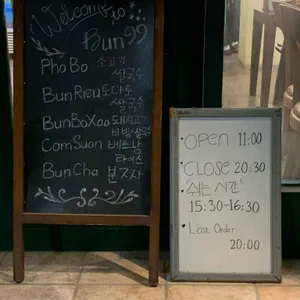 Welcome to
Bun 99
Pho Bo 소고기
쌀국수
Bun Rieu 토마토
쌀국수
Bun Bo Xao 돼지고기
비빔쌀국수
Com Suon 베트남
라이스
Bun Cha 분짜
OPEN 11:00
CLOSE 20:30
"쉬는 시간"
15:30-16:30
Lase Order
20:00